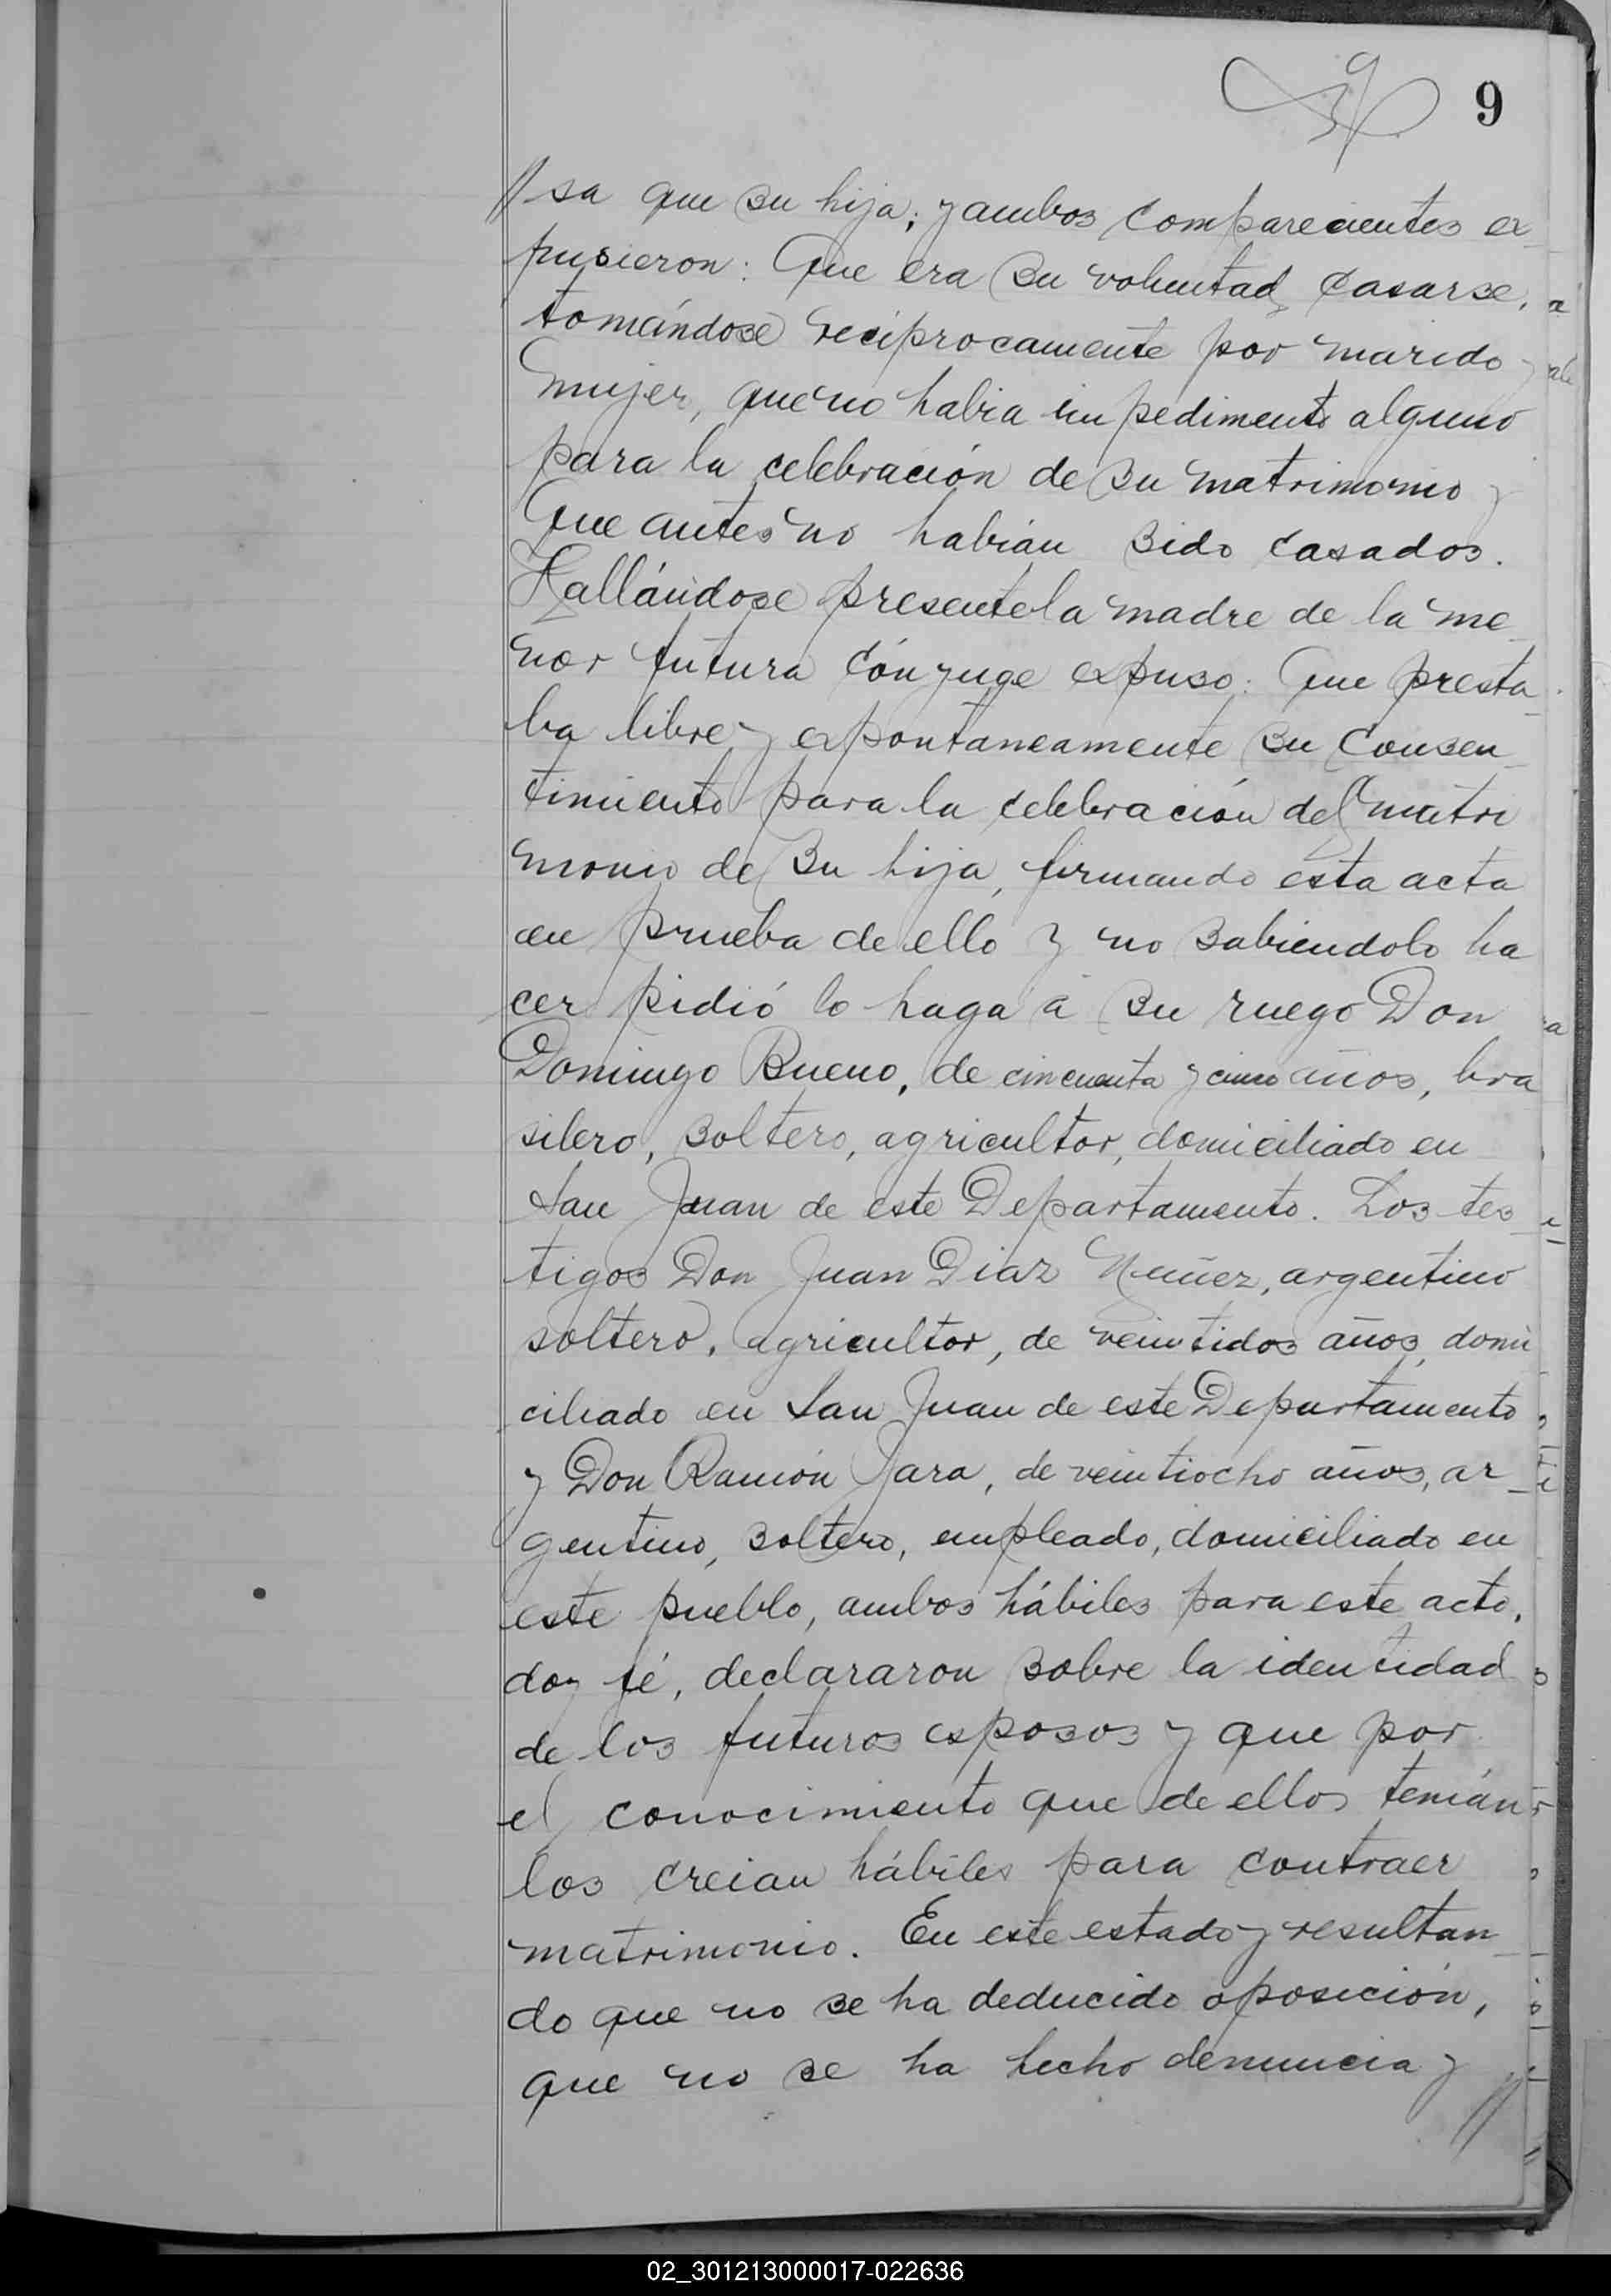 9
// sa que su hija; y ambos comparecientes ex_
pusieron: Que era su voluntad casarse,
tomándose reciprocamente por marido y
mujer, que no habia impedimento alguno
para la celebración de su matrimonio y
que antes no habián sido casados.
Hallándose presente la madre de la me_
nor futura cónyuge expuso: Que presta_
ba libre y expontaneamente su consen_
timiento para la celebración del matri
monio de su hija, firmando esta acta
en prueba de ello y no sabiendolo ha
cer pidió lo haga á su ruego Don
Domingo Bueno, de cincuenta y cinco años, bra
silero, soltero, agricultor, domiciliado en
San Juan de este Departamento. Los tes_
tigos Don Juan Diaz Nuñez, argentino
soltero, agricultor, de veintidos años, domi
ciliado en San Juan de este Departamento
y Don Ramón Jara, de veintiocho años, ar_
gentino, soltero, empleado, domiciliado en
este pueblo, ambos hábiles para este acto,
doy fé, declararon sobre la identidad
de los futuros esposos y que por
el conocimiento que de ellos tenián
los creian hábiles para contraer
matrimonio. En este estado y resultan_
do que no se ha deducido oposición,
que no se ha hecho denuncia y //
02_301213000017-022636